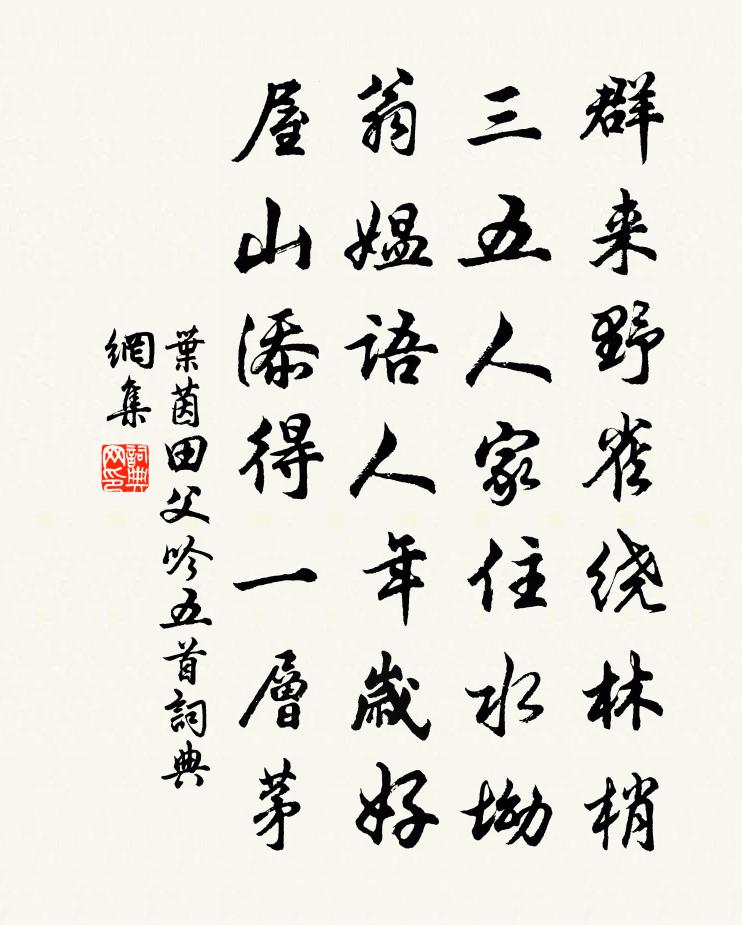 群来野雀绕林梢
三五人家住水坳
翁媪語人年歲好
屋山添得一層茅
葉茵田父吟五首詞典
網集
詞典
网印